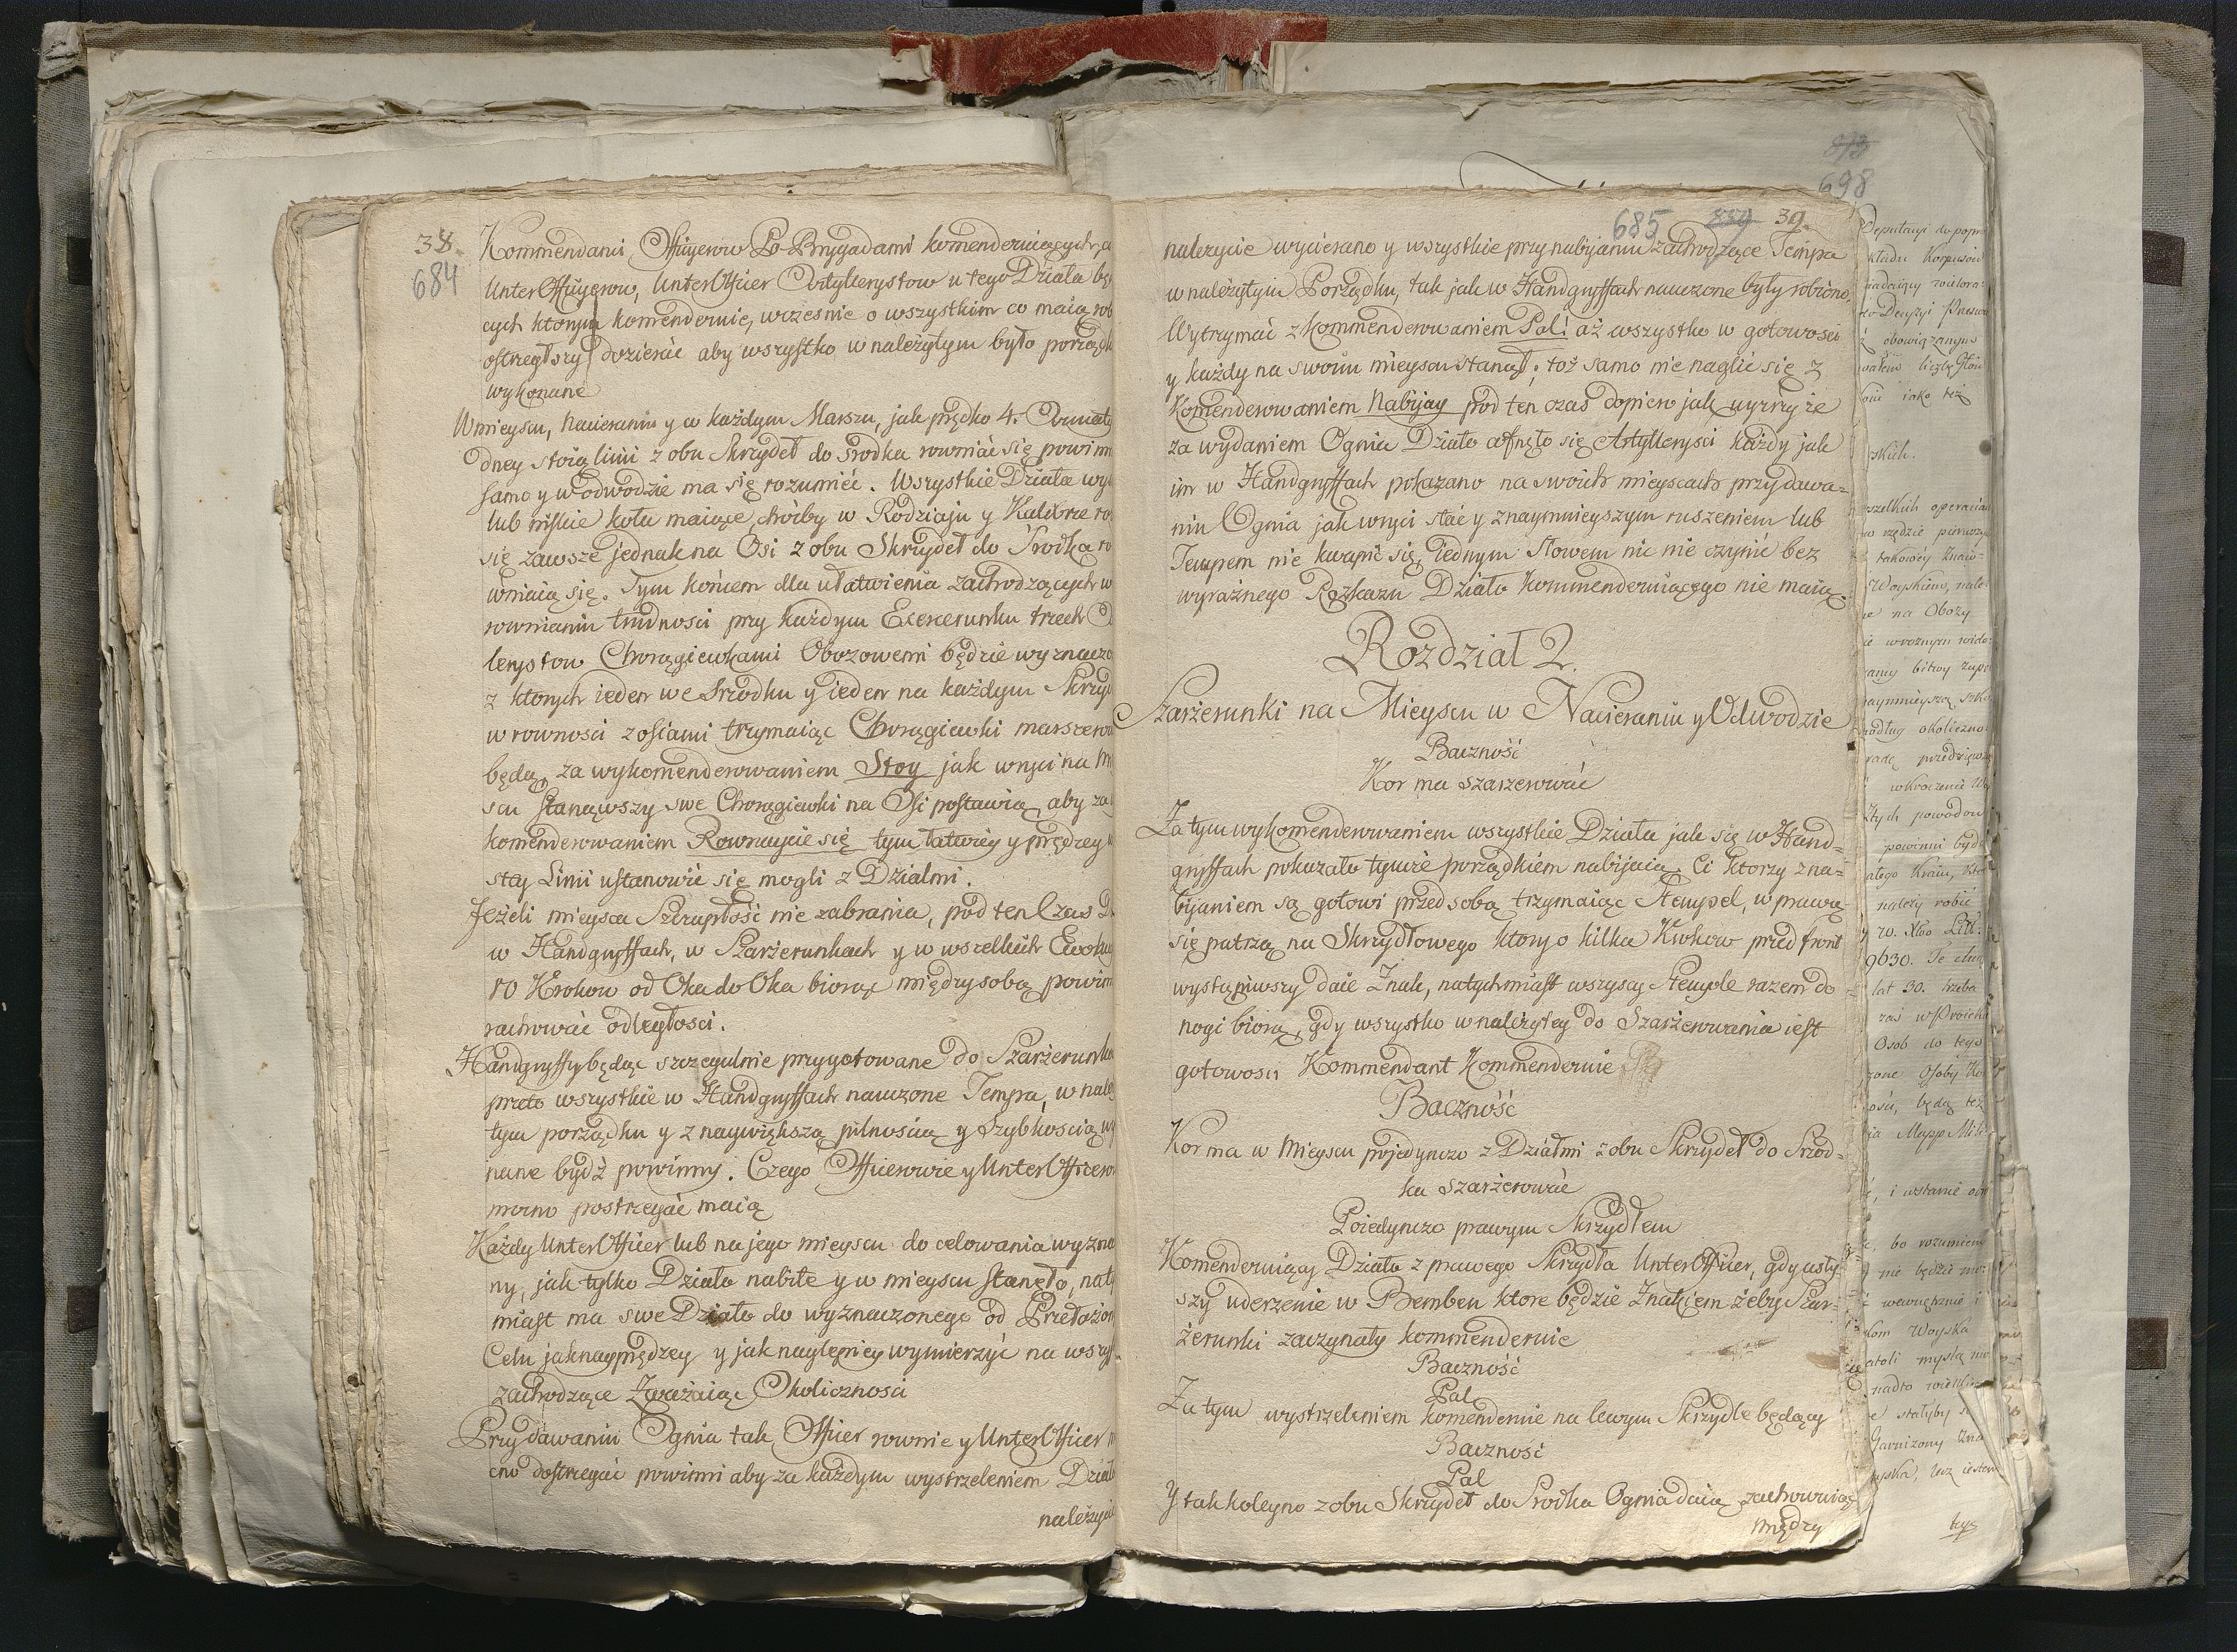 38.
684
Kommendanci, Officyerow Po Brygadami komenderuiących,
UnterOfficyerow, UnterOfficer Artyllerystow u tego Działa bę
cych ktorym komenderuie, wcześnie o wszystkim co maią rob
ostrzegłszy dozierać aby wszystko w należytym było porządk
wykonane
W mieyscu, Nacieraniu y w każdym Marszu, jak prędko 4. Armaty
dney stoią linii z obu Skrzydeł do środka rownać się powinn
samo y w odwodzie ma się rozumieć. Wszystkie Działa wy
lub niskie koła maiące, chócby w Rodzaju y Kalibrze ro
się zawsze jednak na Osi z obu Skrzydeł do Srodka ro
wniaią się. Tym końcem dla ułatwienia zachodzących w
rownianiu trudnosci przy każdym Exercerunku trzech
lerystow Chorągiewkami Obozowemi będzie wyznaczo
z ktorych ieden we Srzodku y ieden na każdym Skrzyd
w rownosci z osiami trzymaiąc Chorągiewki marszero
będą, za wykomenderowaniem Stoy jak wryci na M
scu stanąwszy swe Chorągiewki na Osi postawią, aby za
komenderowaniem Rownaycie się tym łatwiey y prędzey
stay Linii ustanowić się mogli z Działmi.
Jeżeli mieysca Szczupłość nie zabrania, pod ten Czas
w Handgryffach, w Szarżerunkach y w wszelkich Ewolu
10 Krokow od Oka do Oka biorąc między sobą powinn
zachować odległosci.
Handgryffy będąc szczegulnie przygotowane do Szarżerunk
przeto wszystkie w Handgryffach nauczone Tempa, w nale
tym porządku y z naywiększą pilnoscią y Szybkoscią wy
nane bydź powinny. Czego Officerowie y UnterOfficero
mocno postrzegać maią
Każdy UnterOfficer lub na jego mieyscu do celowania wyzna
ny, jak tylko Działo nabite y w mieyscu stanęło, naty
miast ma swe Działo do wyznaczonego od Przełożon
Celu jaknayprędzey y jak naylepiey wymierzyć na wszys
zachodzące Zważaiąc Okolicznosci
Przy dawaniu Ognia tak Officer rownie y UnterOfficer
cno dostrzegać powinni aby za każdym wystrzeleniem Dział
należyci
685 839 39.
należycie wycierano y wszystkie przy nabijaniu zachodzące Tempa
w należytym Porządku, tak jak w Handgryffach nauczone były robione.
Wytrzymać z Kommenderowaniem Pal! aż wszystko w gotowosci
y każdy na swoim mieyscu stanął; toż samo nie naglić się z
Komenderowaniem Nabijay pod ten czas dopiero jak uyrzy że
za wydaniem Ognia Działo cofnęło się Artylleryści każdy jak
im w Handgryffach pokazano na swoich mieyscach przy dawa=
niu Ognia jak wryci stać y znaymnieyszym ruszeniem lub
Tempem nie kwapić się, iednym Słowem nic nie czynić bez
wyraźnego Rozkazu Działo Kommenderuiącego nie maią.
Rozdział 2.
Szarżerunki na Mieyscu w Nacieraniu y Odwodzie
Baczność
Kor ma szarżerować
Za tym wykomenderowaniem wszystkie Działa jak się w Hand=
gryffach pokazało tymże porządkiem nabijaią. Ci ktorzy z na=
bijaniem są gotowi przed sobą trzymaiąc Stempel, w prawą
się patrzą na Skrzydłowego ktory o kilka Krokow przed front
wystąpiwszy daie Znak, natychmiast wszyscy Stemple razem do
nogi biorą, gdy wszystko w należytey do Szarżerowania iest
gotowosci Kommendant Kommenderuie
Baczność
Kor ma w Mieyscu pojedynczo z Działmi z obu Skrzydeł do Srzod=
ka szarżerować
Poiedynczo prawym Skrzydłem
Komenderuiący Działo z prawego Skrzydła UnterOfficer, gdy usły
szy uderzenie w Bemben ktore będzie Znakiem żeby Szar=
żerunki zaczynały kommenderuie
Baczność
Pal
Za tym wystrzeleniem komenderuie na lewym Skrzydle będący
Baczność
Pal
Y tak koleyno z obu Skrzydeł do Srodka Ognia daią, zachowuiąc
między
698
Deputacyi do popr
kładu Korpusow
obowiązanym
iako też
rskich.
wszelkich operacia
na Obozy
bitwy
okoliczno
wkroczenie
tych powodow
powinni bydź
należy robić
9630.
lat 30. trzeba
Osob do tego
będą też
Mapp
bo rozumiem
nie będzie
wewnętrznie i
Woyska
myslą
nadto
stałyby
Garnizony